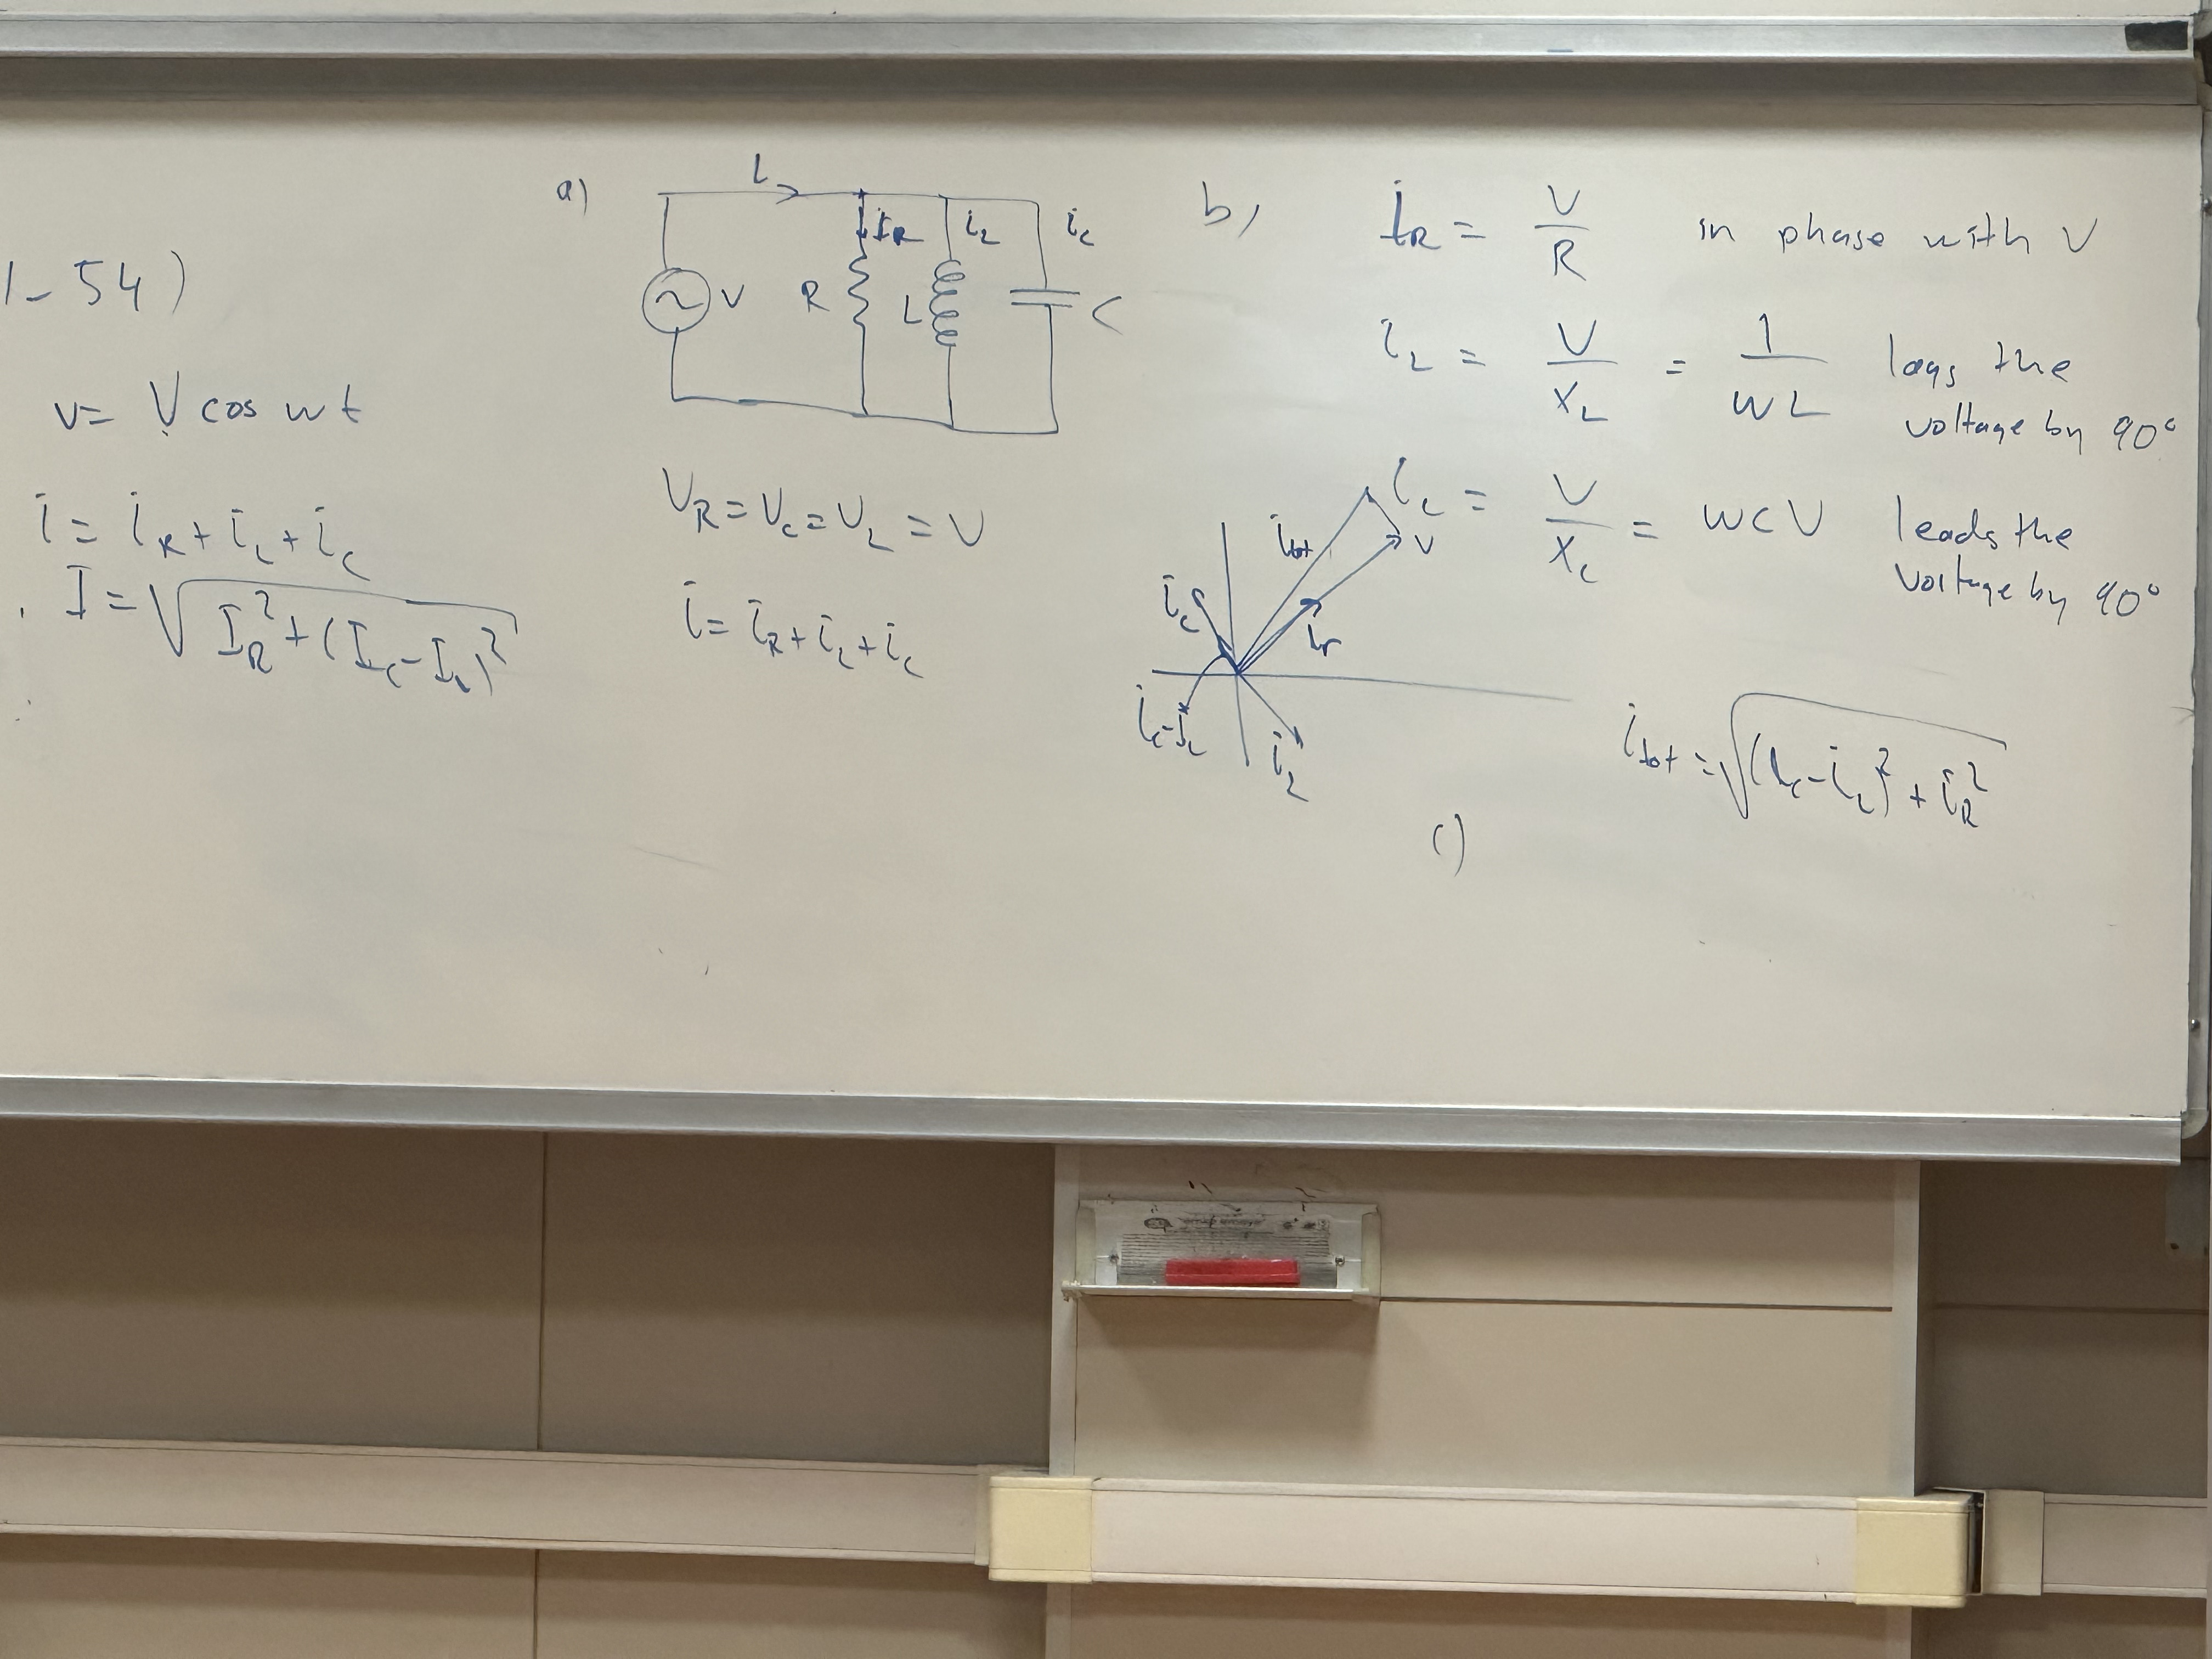 1-54)
v = V cos wt
i = i_R + i_L + i_C
I = √(I_R² + (I_C - I_L)²)
a)
i
i_R i_L i_C
V R L C
V_R = V_C = V_L = V
i = i_R + i_L + i_C
b)
i_R = V/R in phase with V
i_L = V/X_L = 1/WL lags the
voltage by 90°
i_C = V/X_C = WCV leads the
voltage by 90°
i_tot V
i_C
i_r
i_C-I_L
i_L
i_tot = √((i_C - i_L)² + i_R²)
c)